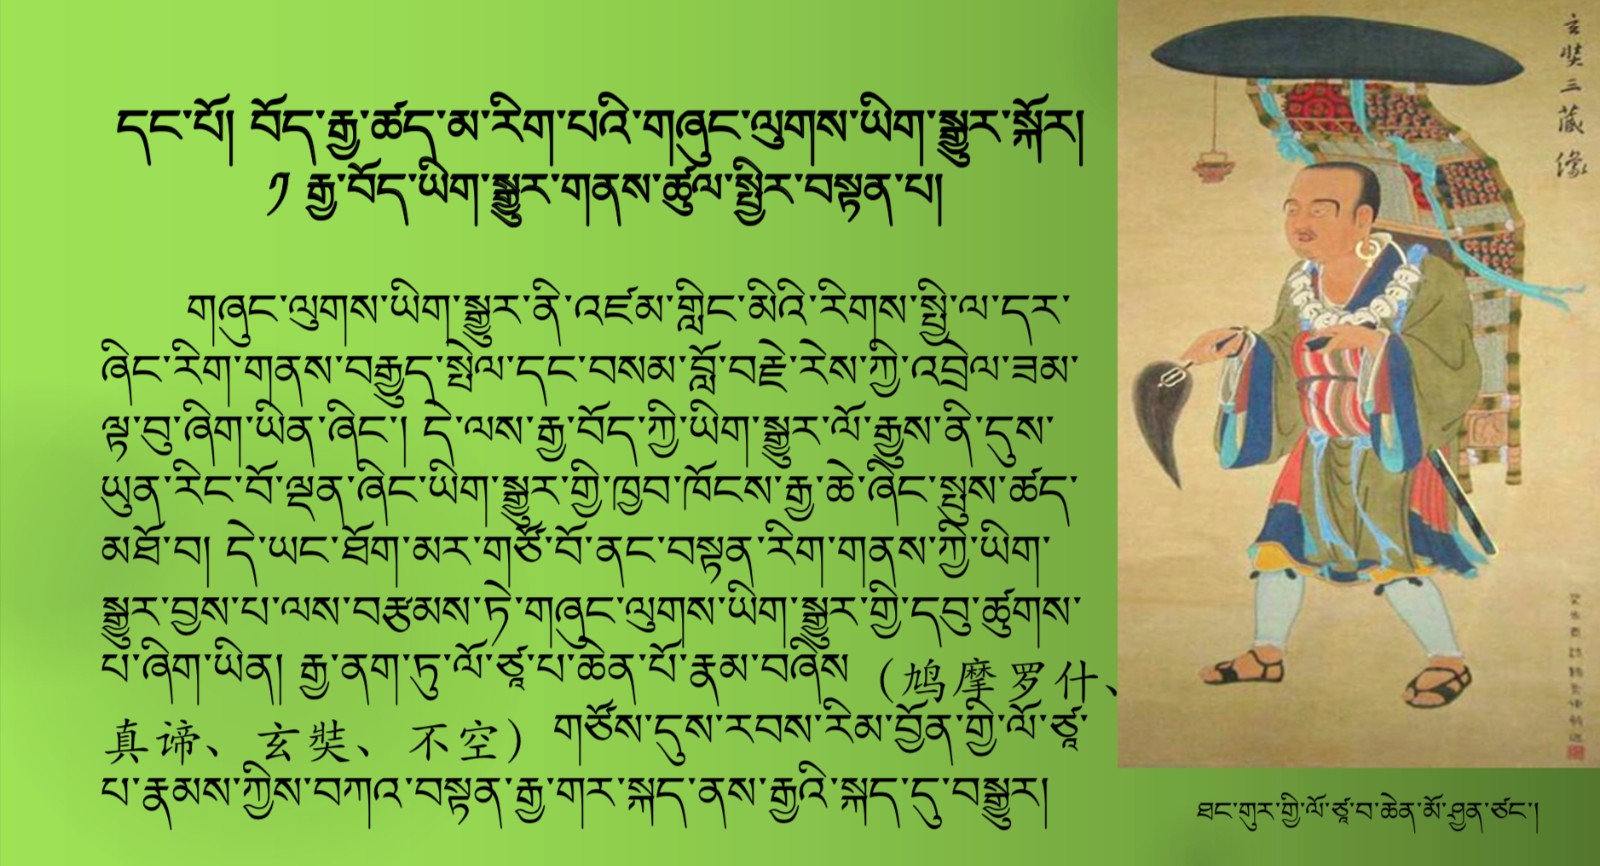 དང་པོ། བོད་རྒྱ་ཚད་མ་རིག་པའི་གཞུང་ལུགས་ཡིག་སྒྱུར་སྐོར།
༡ རྒྱ་བོད་ཡིག་སྒྱུར་གནས་ཚུལ་སྤྱིར་བསྟན་པ།
གཞུང་ལུགས་ཡིག་སྒྱུར་ནི་འཛམ་གླིང་མིའི་རིགས་སྤྱི་ལ་དར་
ཞིང་རིག་གནས་བརྒྱུད་སྤེལ་དང་བསམ་བློ་བརྗེ་རེས་ཀྱི་འབྲེལ་ཟམ་
ལྟ་བུ་ཞིག་ཡིན་ཞིང་། དེ་ལས་རྒྱ་བོད་ཀྱི་ཡིག་སྒྱུར་ལོ་རྒྱུས་ནི་དུས་
ཡུན་རིང་བོ་ལྡན་ཞིང་ཡིག་སྒྱུར་གྱི་ཁྱབ་ཁོངས་རྒྱ་ཆེ་ཞིང་སྤུས་ཚད་
མཐོ་བ། དེ་ཡང་ཐོག་མར་གཙོ་བོ་ནང་བསྟན་རིག་གནས་ཀྱི་ཡིག་
སྒྱུར་བྱས་པ་ལས་བརྩམས་ཏེ་གཞུང་ལུགས་ཡིག་སྒྱུར་གྱི་དབུ་ཚུགས་
པ་ཞིག་ཡིན། རྒྱ་ནག་ཏུ་ལོ་ཙཱ་པ་ཆེན་པོ་རྣམ་བཞིས（鸠摩罗什、
真谛、玄奘、不空）གཙོས་དུས་རབས་རིམ་བྱོན་གྱི་ལོ་ཙཱ་
པ་རྣམས་ཀྱིས་བཀའ་བསྟན་རྒྱ་གར་སྐད་ནས་རྒྱའི་སྐད་དུ་བསྒྱུར།
玄奘三藏像
ཐང་གུར་གྱི་ལོ་ཙཱ་བ་ཆེན་མོ་ཤྱན་ཙང་།